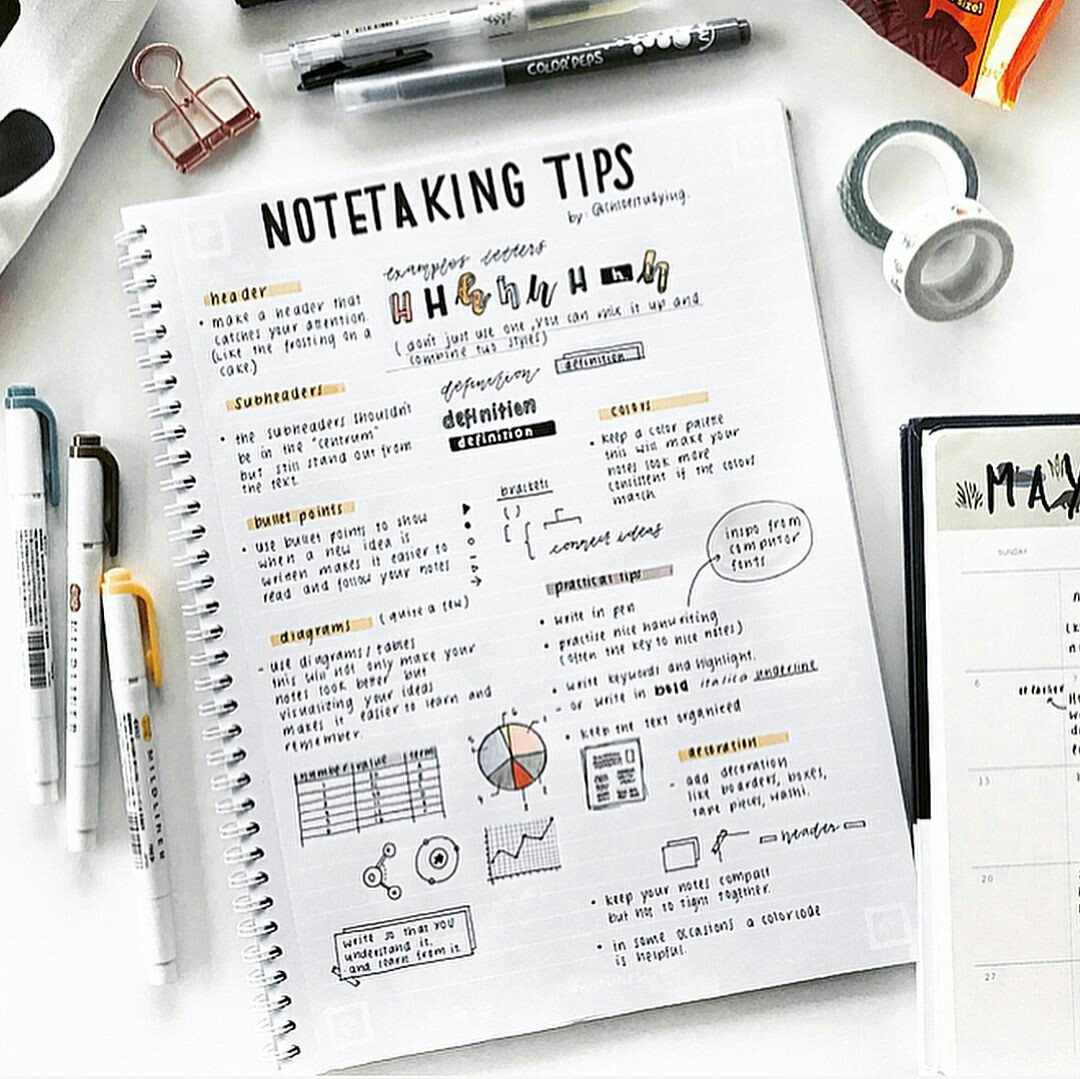 COLOR'PEPS
size!
NOTETAKING TIPS
by: @chloestudying.
header
• make a header that
catches your attention.
(like the frosting on a
cake.)
examples letters
H H h h h H h h
(don't just use one, you can mix it up and
combine two styles)
Subheaders
• the subheaders shouldn't
be in the "centrum"
but still stand out from
the text.
definition
definition
definition
definition
colors
• keep a color palette
this will make your
notes look more
consistent if the colors
match.
bullet points
• use bullet points to show
when a new idea is
written makes it easier to
read and follow your notes
brackets
connect ideas
inspo from
computor
fonts
diagrams (quite a few)
- use diagrams/tables
this will not only make your
notes look better but
visualizing your ideas
makes it easier to learn and
remember.
number value term
practical tips
• write in pen
• practise nice handwriting
(often the key to nice notes)
• write keywords and highlight.
- or write in bold italica underline
• keep the text organized
decoration
- add decoration
like boarders, boxes,
tape pieces, washi.
header
• keep your notes compact
but not to tight together.
• in some occasions a colorcode
is helpful.
write so that you
understand it.
and learn from it
MILDLINER
MILDLINER
MAY
SUNDAY
6
13
20
27